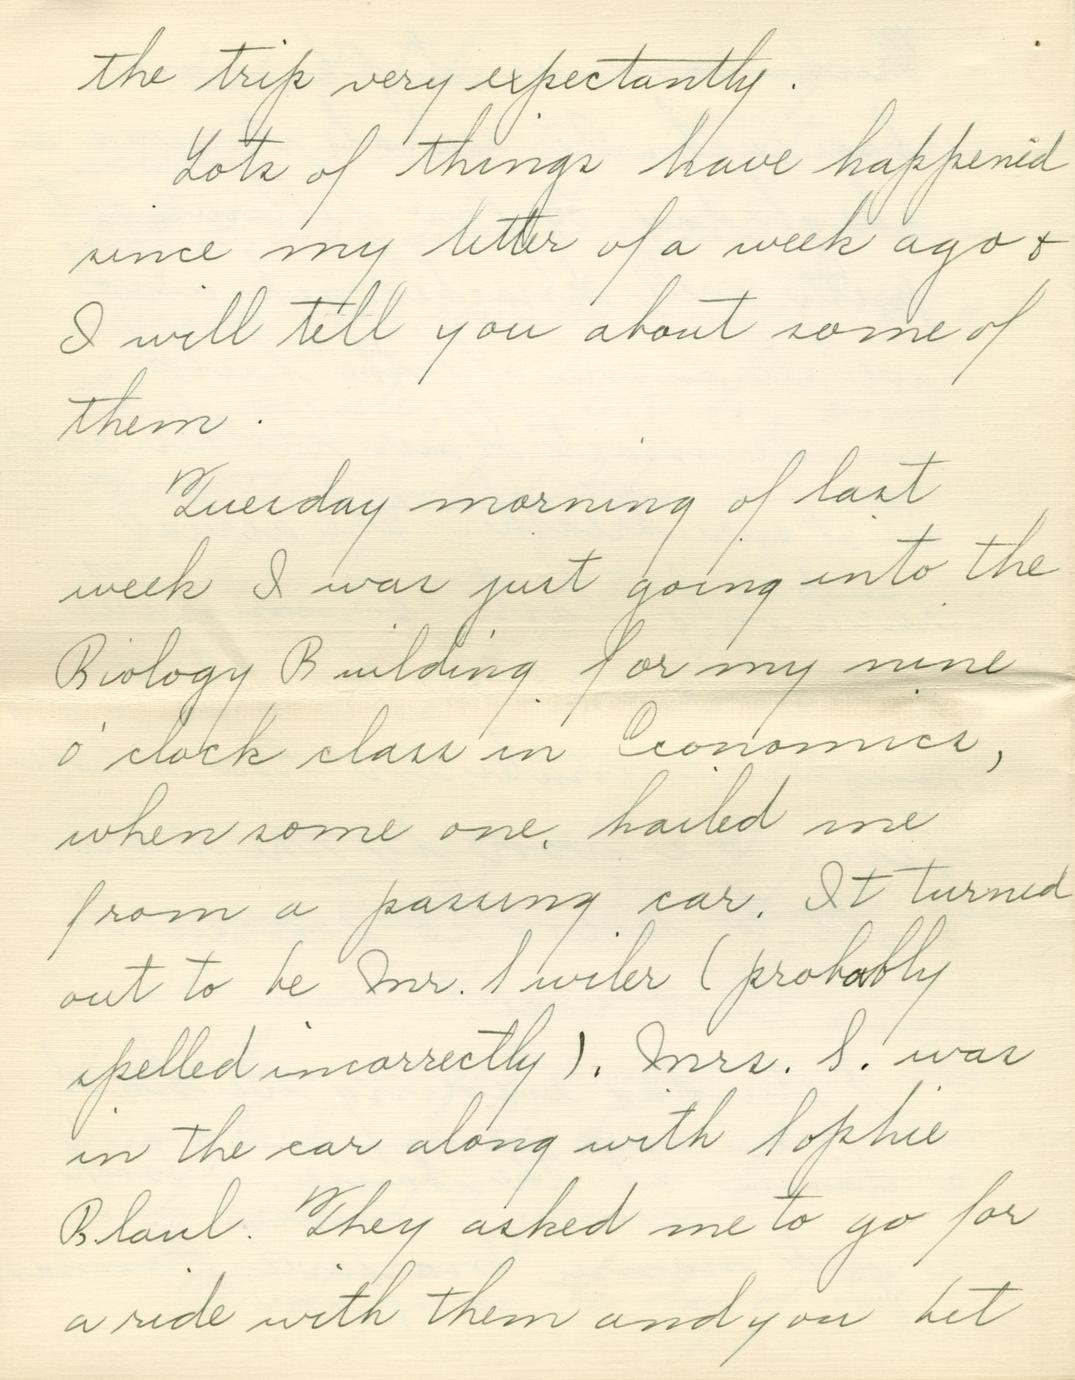 the trip very expectantly.
Lots of things have happened
since my letter of a week ago &
I will tell you about some of
them.
Tuesday morning of last
week I was just going into the
Biology Building for my nine
o'clock class in Economics,
when some one, hailed me
from a passing car. It turned
out to be Mr. Swiler (probably
spelled incorrectly). Mrs. S. was
in the car along with Sophie
Blaul. They asked me to go for
a ride with them and you bet